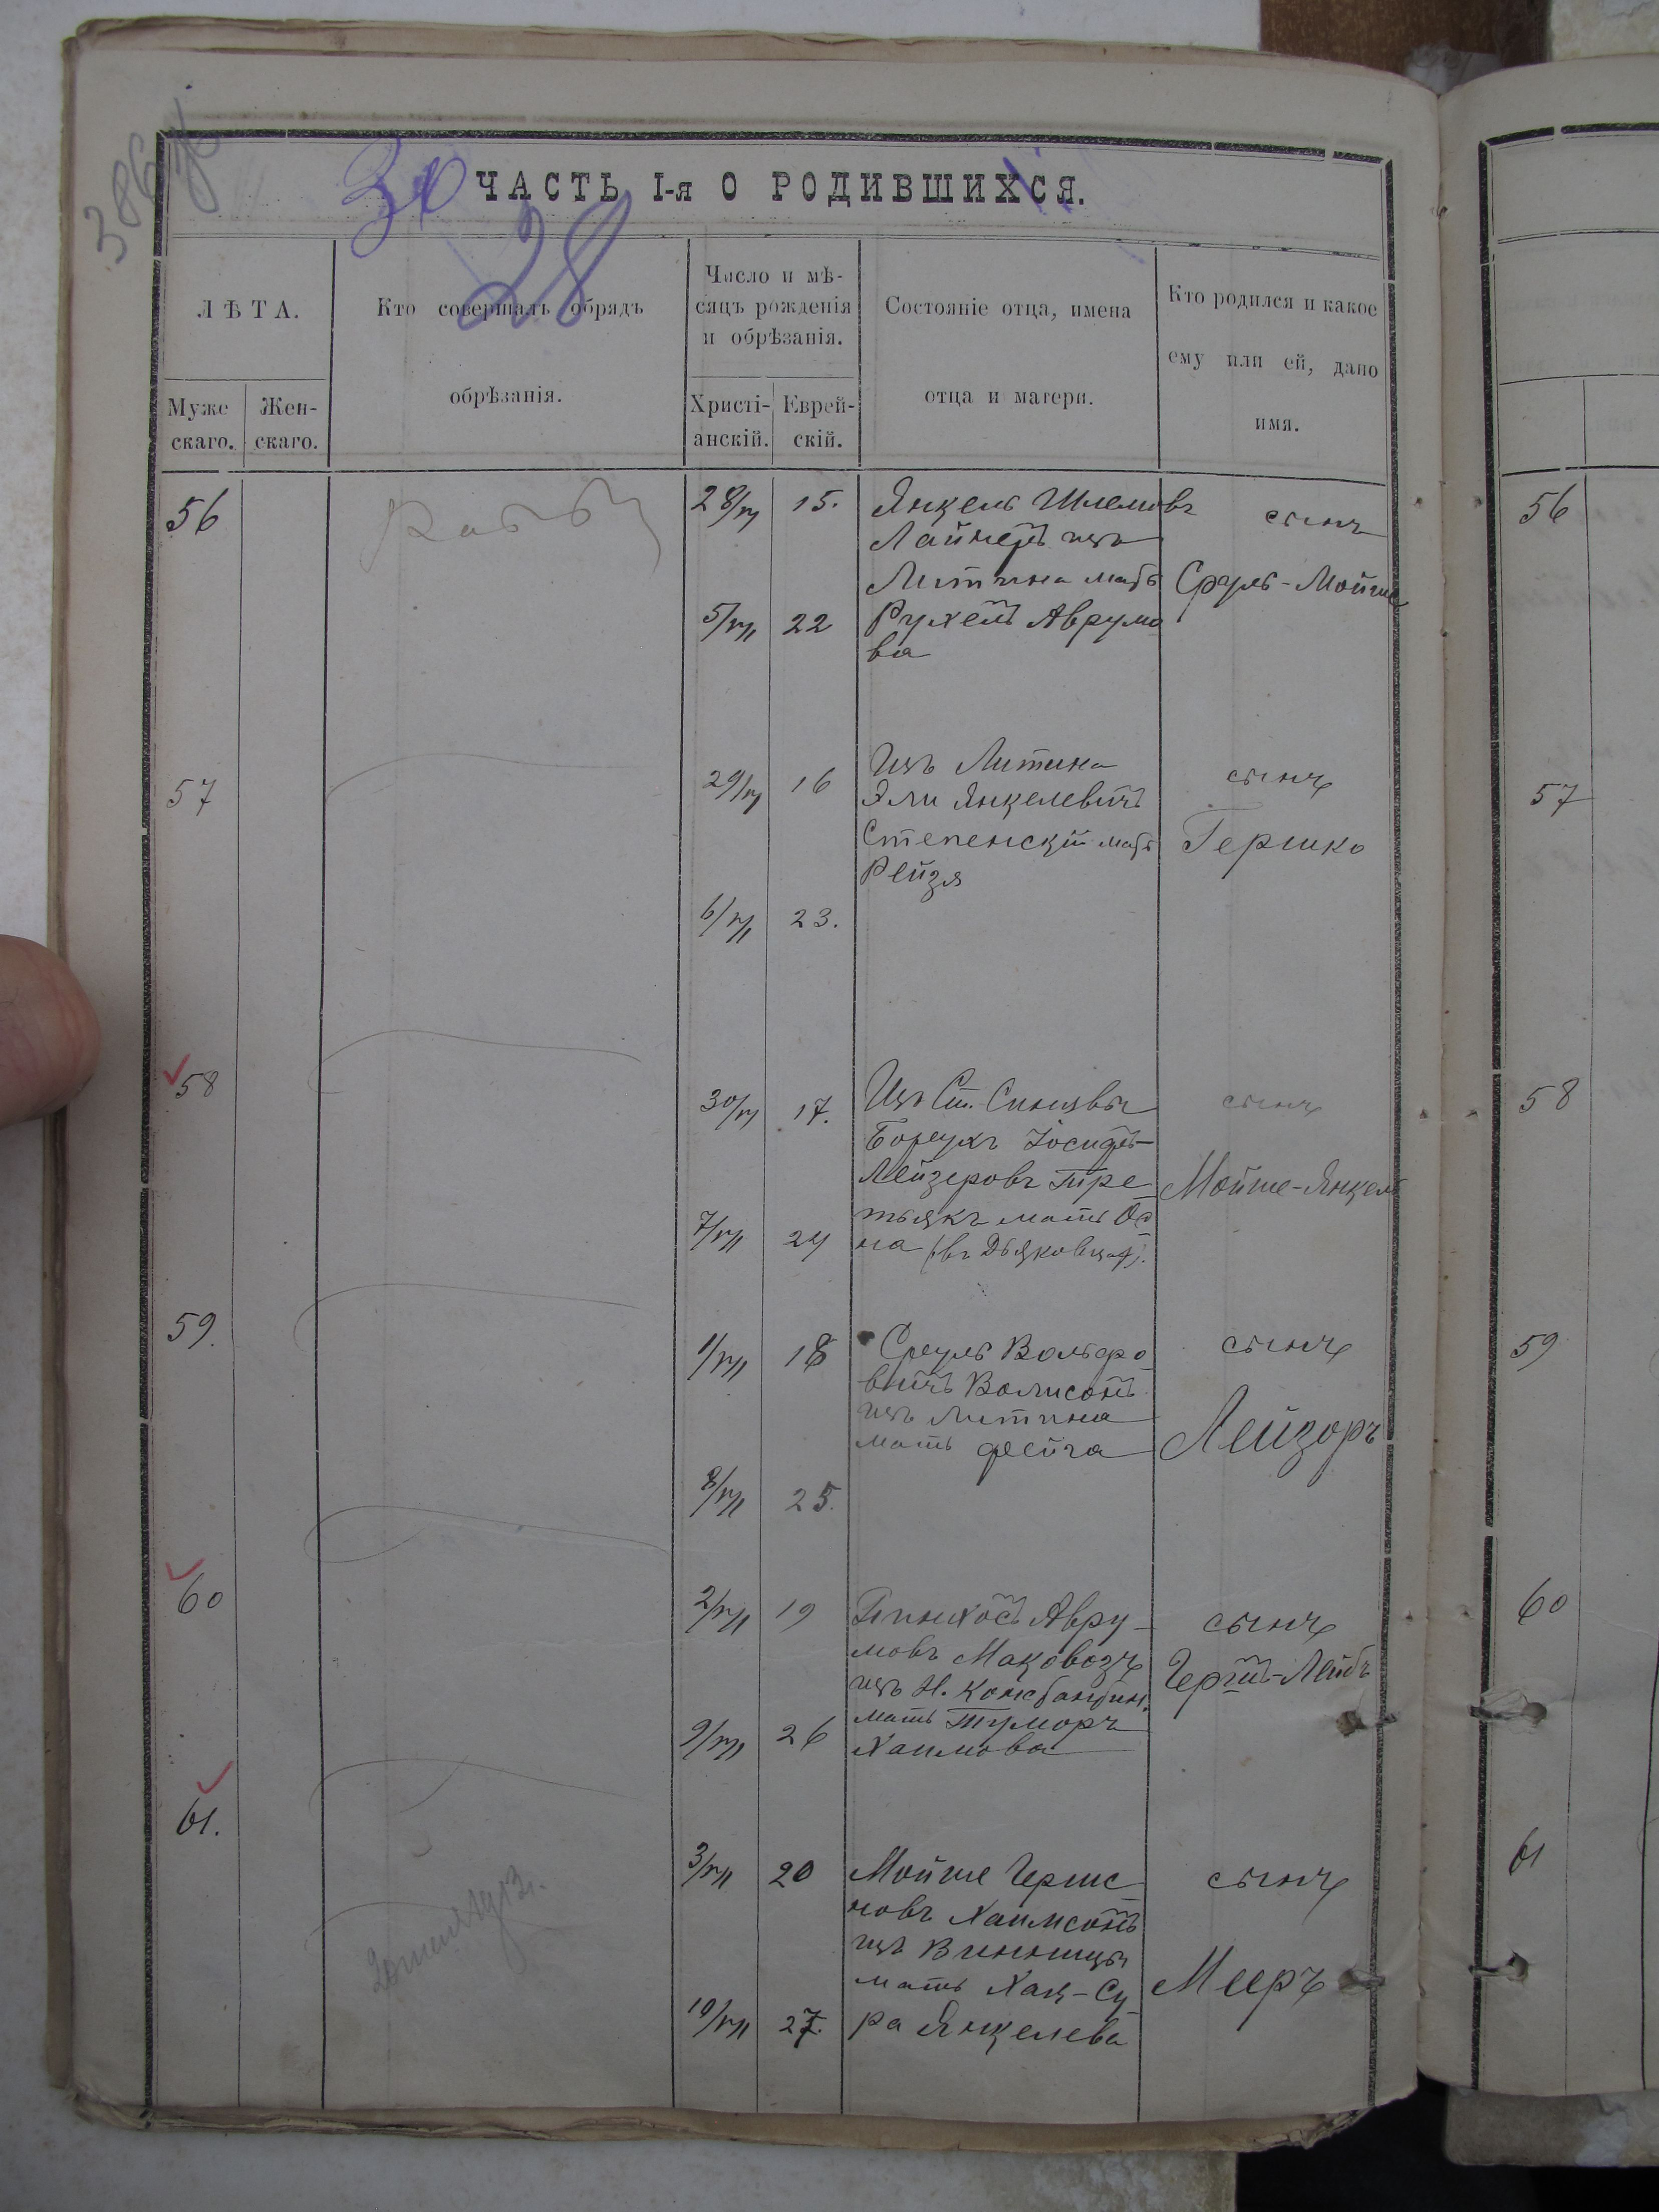 386
30
28
ЧАСТЬ I-я О РОДИВШИХСЯ.
ЛѢТА.
Муже
скаго.
Жен-
скаго.
Кто совершалъ обрядъ
обрѣзанія.
Число и мѣ-
сяцъ рожденія
и обрѣзанія.
Христі-
анскій.
Еврей-
скій.
Состояніе отца, имена
отца и матери.
Кто родился и какое
ему или ей, дано
имя.
56
28/VI 15.
5/VII 22
Янкель Шлемовъ
Лайнеръ изъ
Литина мать
Рухель Аврумо
ва
сынъ
Сруль-Мойше
56
57
29/VI 16
6/VII 23.
Изъ Литина
Эли Янкелевичъ
Степенскій мать
Рейзя
сынъ
Гершко
57
58
30/VI 17.
7/VII 24
Изъ Ст. Синявы
Борухъ Іосифъ-
Лейзеровъ Тре-
тьякъ мать Ос
на (въ Дьяковцах).
сынъ
Мойше-Янкель
58
59.
1/VII 18
8/VII 25.
Сруль Вольфо-
вичъ Волисонъ
изъ Литина
мать Фейга
сынъ
Лейзоръ
59
60
2/VII 19
9/VII 26
Пинхосъ Авру-
мовъ Маковозъ
изъ Н. Константин.
мать Туморъ
Хаимова
сынъ
Гершъ-Лейбъ
60
61.
3/VII 20
10/VII 27.
Мойше Герше
новъ Хаимсонъ
изъ Винницы
мать Хая-Су-
ра Янкелева
сынъ
Мееръ
61